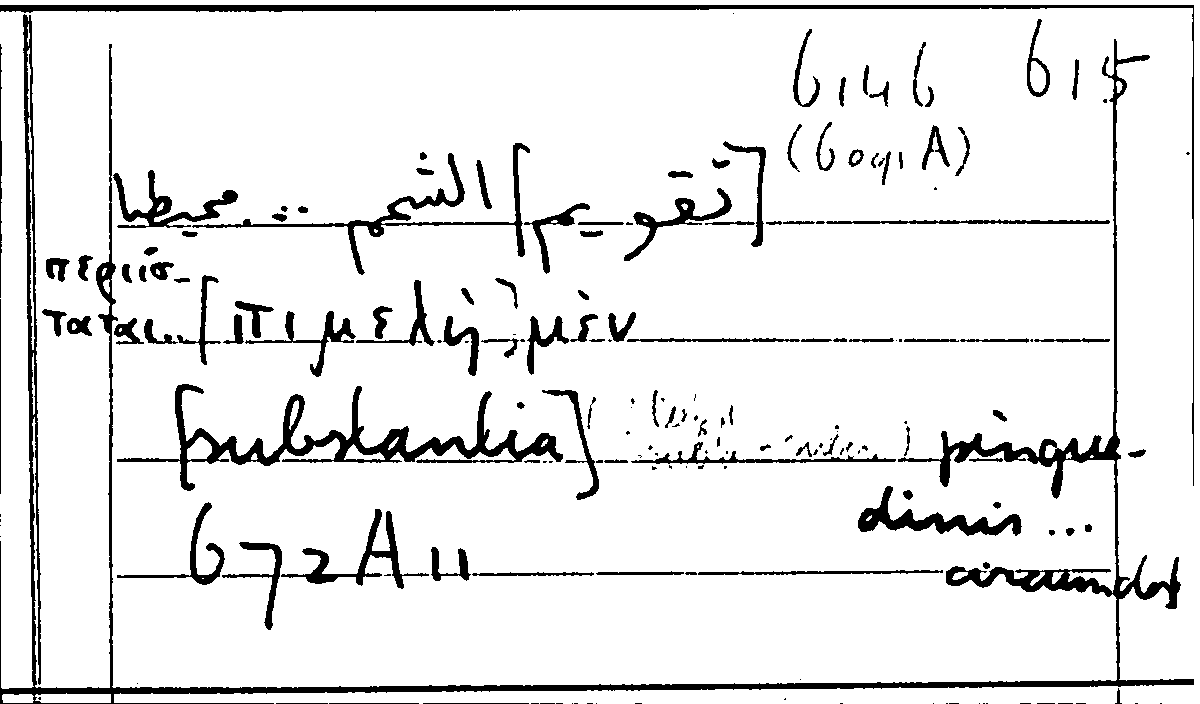 6146 615
(6091A)
[تقويم] الشحم ... محيطا
περιίσ-
ταται.. [πιμελὴ] μὲν
[substantia] pingue-
dinis ...
circumdat
672A11